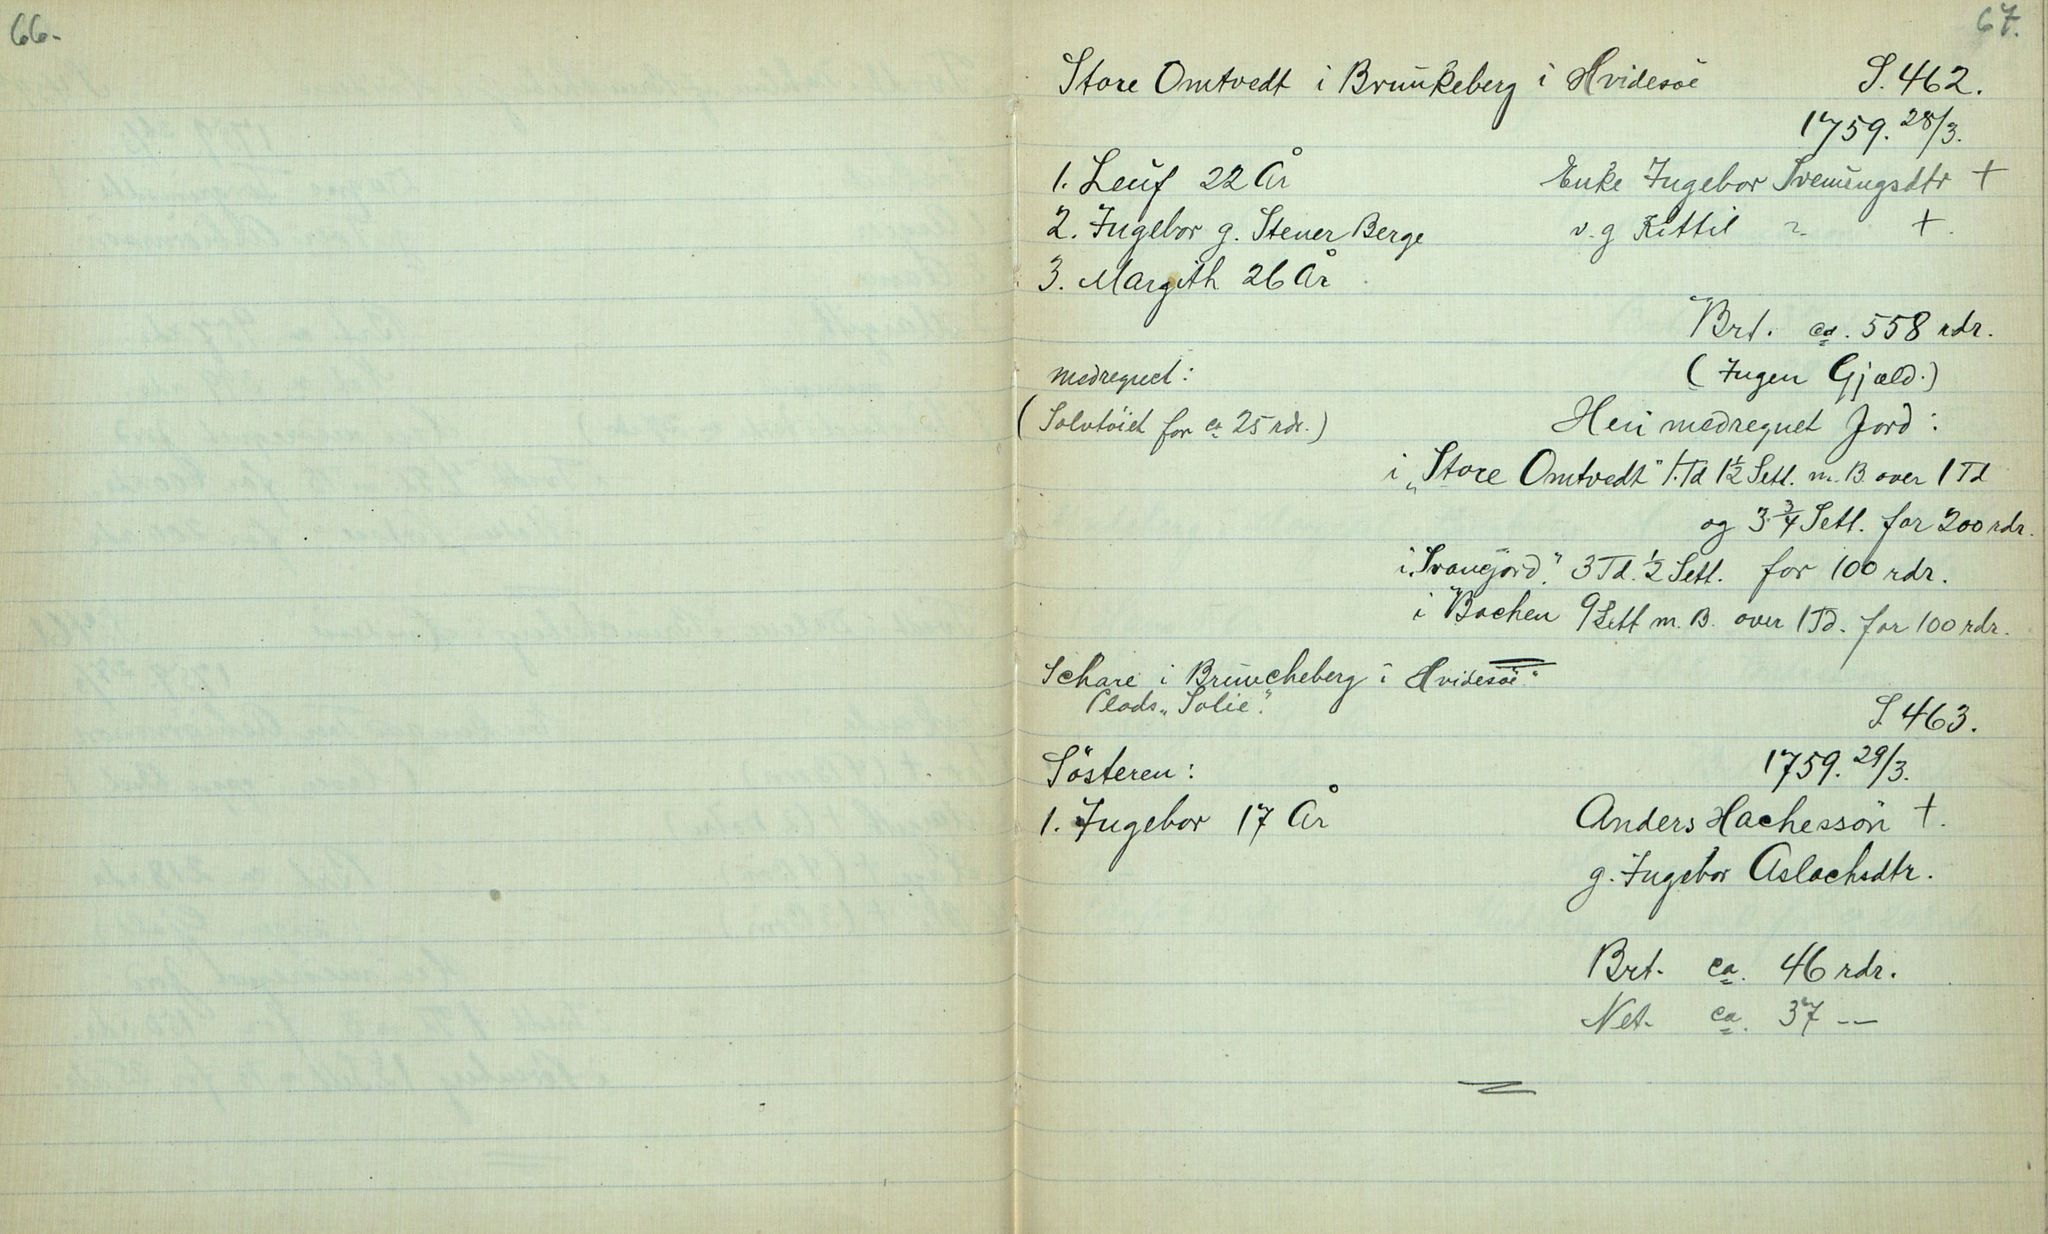 66.
67.
Store Omtvedt i Brunkeberg i Hvidesøe S. 462.
1759. 28/3.
1. Leuf 22 År Enke Ingebor Svenungsdtr +
2. Ingebor g. Stener Berge v. g Kittil ~ +.
3. Margith 26 År
Brt. ca. 558 rdr.
medregnet: (Ingen Gjæld.)
(Sølvtöiet for ca 25 rdr.) Heri medregnet Jord:
i „Store Omtvedt" 1 Td 1½ Setl. m. B. over 1 Td
og 3 3/4 Setl. for 200 rdr.
i „Svangjord". 3 Td. ½ Setl. for 100 rdr.
i Bachen 9 Setl m. B. over 1 Td. for 100 rdr.
Schare i Bruncheberg i Hvidesøe"
Plads „Solie".
S. 463.
Sösteren: 1759. 29/3.
1. Ingebor 17 År Anders Hachessön +.
g. Ingebor Aslachsdtr.
Brt. ca. 46 rdr.
Net. ca. 37 --